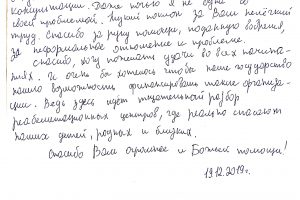 консультации. Даже только я не одна со
своей проблемой. Низкий поклон за Ваш нелегкий
труд. Спасибо за руку помощи, поданную вовремя,
за неформальное отношение к проблеме.
Спасибо, хочу пожелать удачи во всех начина-
ниях. И очень бы хотелось чтобы наше государство
нашло возможность финансировать такие организа-
ции. Ведь здесь идет тщательный разбор
реабелитационных центров, где реально спасают
наших детей, родных и близких.
Спасибо Вам огромное и Божьей помощи!
19.12.2019г.